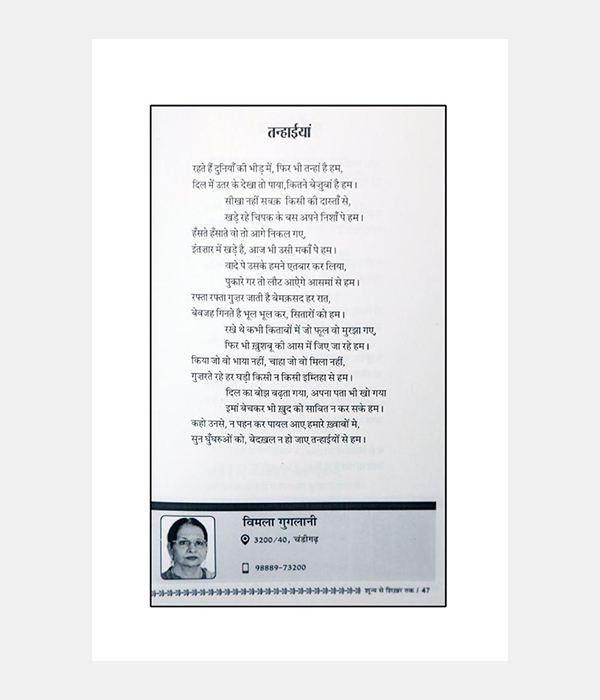 तन्हाईयां
रहते हैं दुनियाँ की भीड़ में, फिर भी तन्हां है हम,
दिल में उतर के देखा तो पाया,कितने बेजुबां है हम।
सीखा नहीं सबक़ किसी की दास्ताँ से,
खड़े रहे चिपक के बस अपने निशाँ पे हम।
हँसते हँसाते वो तो आगे निकल गए,
इंतज़ार में खड़े है, आज भी उसी मकाँ पे हम।
वादे पे उसके हमने एतबार कर लिया,
पुकारे गर तो लौट आऐगे आसमां से हम।
रफ्ता रफ्ता गुज़र जाती है बेमक़सद हर रात,
बेवजह गिनते है भूल भूल कर, सितारों को हम।
रखे थे कभी किताबों में जो फूल वो मुरझा गए,
फिर भी ख़ुशबू की आस में जिए जा रहे हम।
किया जो वो भाया नहीं, चाहा जो वो मिला नहीं,
गुज़रते रहे हर घड़ी किसी न किसी इम्तिहा से हम।
दिल का बोझ बढ़ता गया, अपना पता भी खो गया
इमां बेचकर भी ख़ुद को साबित न कर सके हम।
कहो उनसे, न पहन कर पायल आए हमारे ख़्वाबों मे,
सुन घुँघरुओं को, बेदख़ल न हो जाए तन्हाईयों से हम।
विमला गुगलानी
3200/40, चंडीगढ़
98889-73200
शून्य से शिखर तक / 47